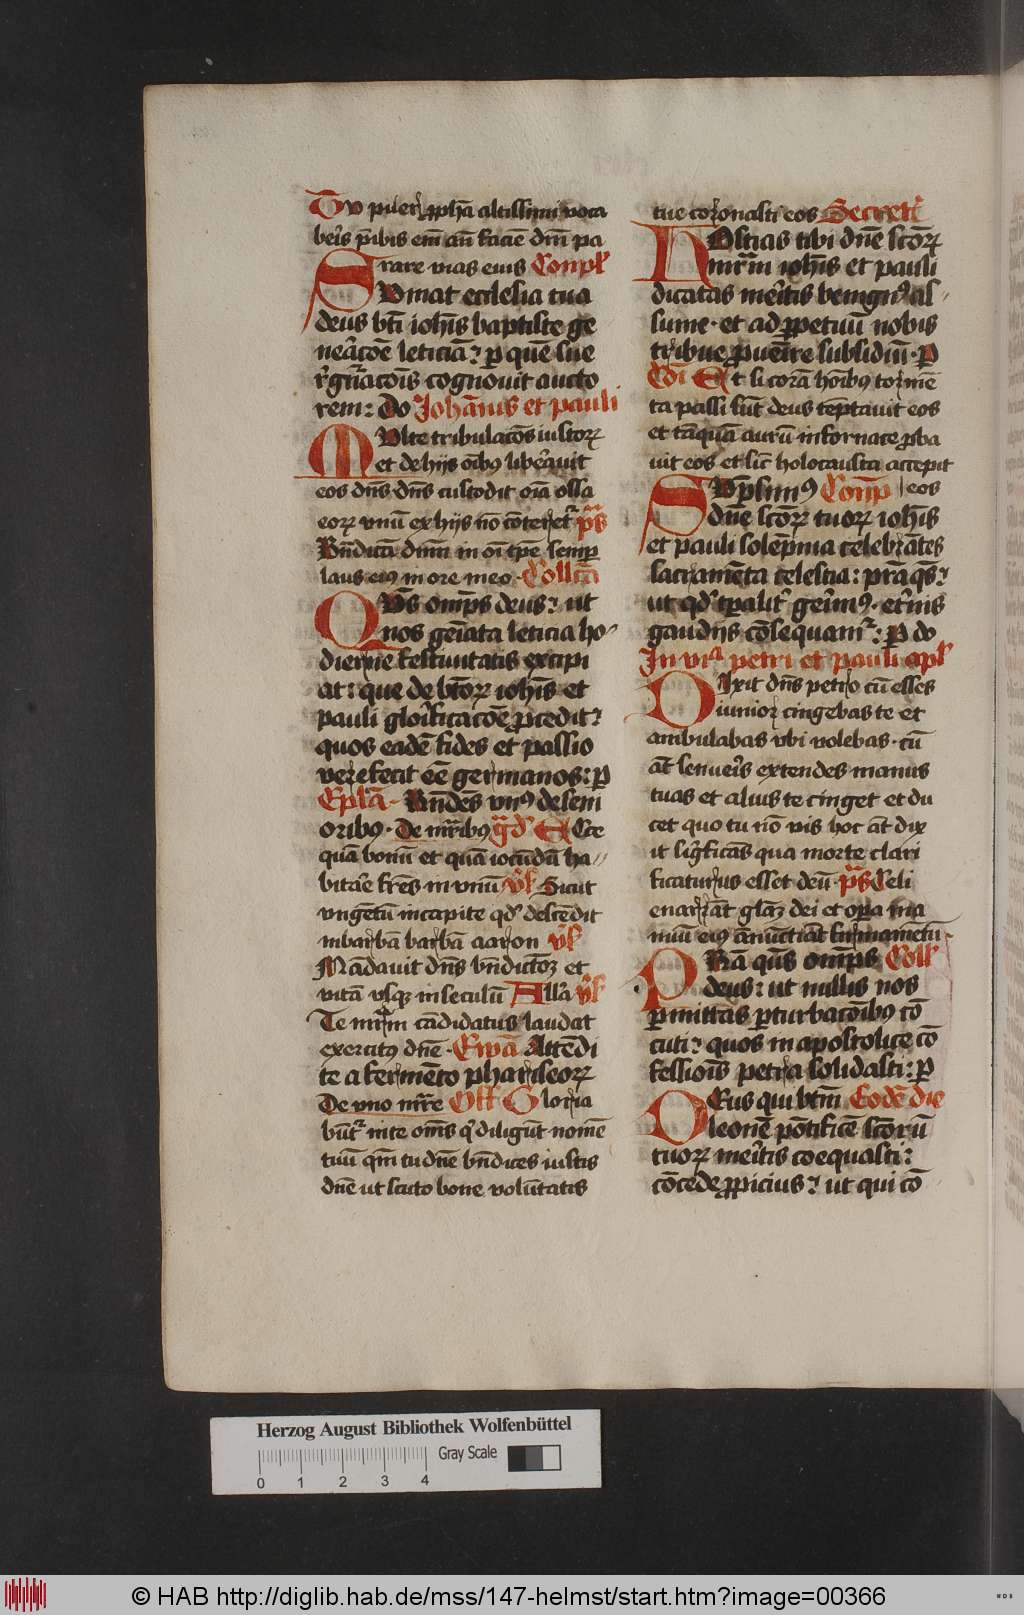 Tu puer ꝓphā altissimi voca
beꝛis p̄ibis em̄ an̄ faciē dn̄i pa
rare vias eius Conpl̄
Sumat ecclesia tua
deus bt̄i ioh̄is baptiste ge
neꝛacōē leticiā: ꝑ quē sue
cognouit aucto
rem: Do Johannis et pauli
Multe tribulacōēs iustoꝝ
et de hijs oībꝰ liberauit
eos dn̄s dn̄s custodit oīa ossa
eoꝝ vnū ex hijs nō cōteret p̄s
Bn̄dicā dn̄m in oī tp̄e semꝑ
laus eiꝰ in ore meo Collcā
Qus om̄ps deus: ut
nos geīata leticia ho
dierne festiuitatis excipi
at: que de bt̄oꝝ ioh̄is et
pauli gloīficacōē ꝓcedit:
quos eadē fides et passio
vere fecit eē germanos: ꝑ
Eplā Rn̄dēs vnꝰ de seni
oribꝰ. De mr̄ibꝰ gd̄ Ecce
quā bonū et quā iocūdū ha
bitaꝛe fr̄es in vnū v̄ Sicut
vngētū incapite qd̄ descēdit
inbarbā barbā aaron v̄
Mādauit dn̄s bn̄dictōꝫ et
vitā vsqꝫ inseculū Allā v̄
Te mr̄m cādidatus laudat
exercitꝰ dn̄e. Ewā Attēdi
te a fermēto phariseoꝝ
De vno mr̄re Off Gloria
būt in te om̄s q̄ diligūt nomē
tuū qm̄ tu dn̄e bn̄dices iustis
dn̄e ut scuto bone volūtatis
tue coronasti eos Secret
Hostias tibi dn̄e sc̄oꝝ
mr̄m ioh̄is et pauli
dicatas meītis benignꝰ as
sume. et ad ꝑpetuū nobis
tribue ꝓueīre subsidiū. ꝑ
Cōī Et si corā hōibꝰ tormē
ta passi sūt deus tēptauit eos
et tāquā aurū in fornace ꝓba
uit eos et sic̄ holocausta accepit
Sup̄simꝰ Conp̄ eos
dn̄e sc̄oꝝ tuoꝝ ioh̄is
et pauli solēpnia celebrātes
sacramēta celestia: p̄ra qs̄:
ut qd̄ tp̄alit geīmꝰ. eternis
gaudijs cōsequam̄: ꝑ do
In vi petri et pauli apl̄
Dixit dn̄s petro cū esses
iunior cingebas te et
ambulabas vbi volebas. cū
āt senueris extendes manus
tuas et alius te cinget et du
cet quo tu nō vis hoc āt dix
it sigīficās qua morte clari
ficaturus esset deū. p̄s Celi
enarrāt glāꝫ dei et opera ma
nuū eiꝰ ānūctiāt firmamētū
Pra qus om̄ps Coll
deus: ut nullis nos
ꝑmittas ꝑturbacōībꝰ cō
cuti: quos in apostolice cō
fessiois petra solidasti: ꝑ
Deus qui bt̄m Eodē die
leonē pōtificē sc̄orū
tuoꝝ meītis coequasti:
cōcede ꝓpicius: ut qui cō
Herzog August Bibliothek Wolfenbüttel
Gray Scale
0 1 2 3 4
© HAB http://diglib.hab.de/mss/147-helmst/start.htm?image=00366